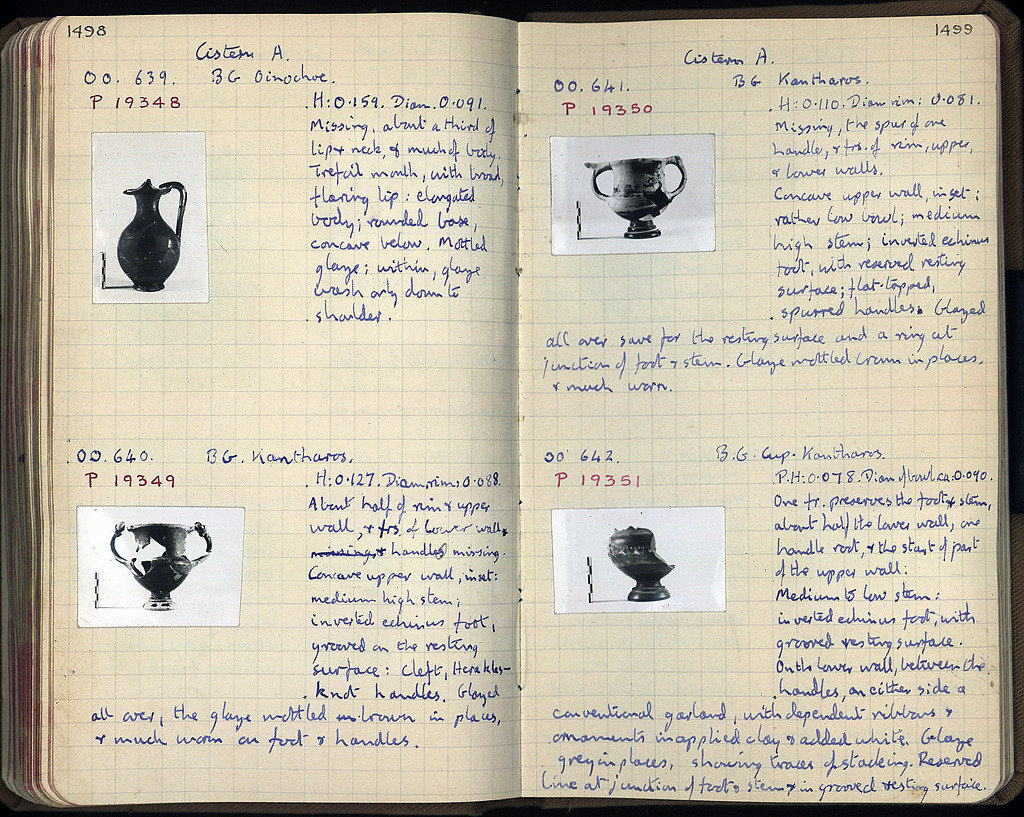 1498
Cistern A.
OO. 639. BG Oinochoe.
P 19348
H: 0.159. Diam. 0.091.
Missing, about a third of
lip & neck, & much of body.
Trefoil mouth, with broad,
flaring lip: elongated
body; rounded base,
concave below. Mottled
glaze; within, glaze
wash only down to
shoulder.
OO. 640. BG. Kantharos.
P 19349
H: 0.127. Diam. rim: 0.088.
About half of rim & upper
wall, & frs. of lower wall &
missing, & handles missing.
Concave upper wall, inset:
medium high stem;
inverted echinus foot,
grooved on the resting
surface: Cleft, Herakles-
knot handles. Glazed
all over, the glaze mottled brown in places,
& much worn on foot & handles.
1499
Cistern A.
OO. 641. BG Kantharos.
P 19350
H: 0.110. Diam rim: 0.081.
Missing, the spur of one
handle, & frs. of rim, upper,
& lower walls.
Concave upper wall, inset;
rather low bowl; medium
high stem; inverted echinus
foot, with reserved resting
surface; flat-topped,
spurred handles. Glazed
all over save for the resting surface and a ring at
junction of foot & stem. Glaze mottled brown in places,
& much worn.
OO 642. B.G. Cup-Kantharos.
P 19351
P.H: 0.078. Diam of bowl ca. 0.090.
One fr. preserves the foot & stem,
about half the lower wall, one
handle root, & the start of part
of the upper wall.
Medium to low stem:
inverted echinus foot, with
grooved resting surface.
On the lower wall, between the
handles, on either side a
conventional garland, with dependent ribbons &
ornaments in applied clay & added white. Glaze
grey in places, showing traces of stacking. Reserved
line at junction of foot & stem & in grooved resting surface.